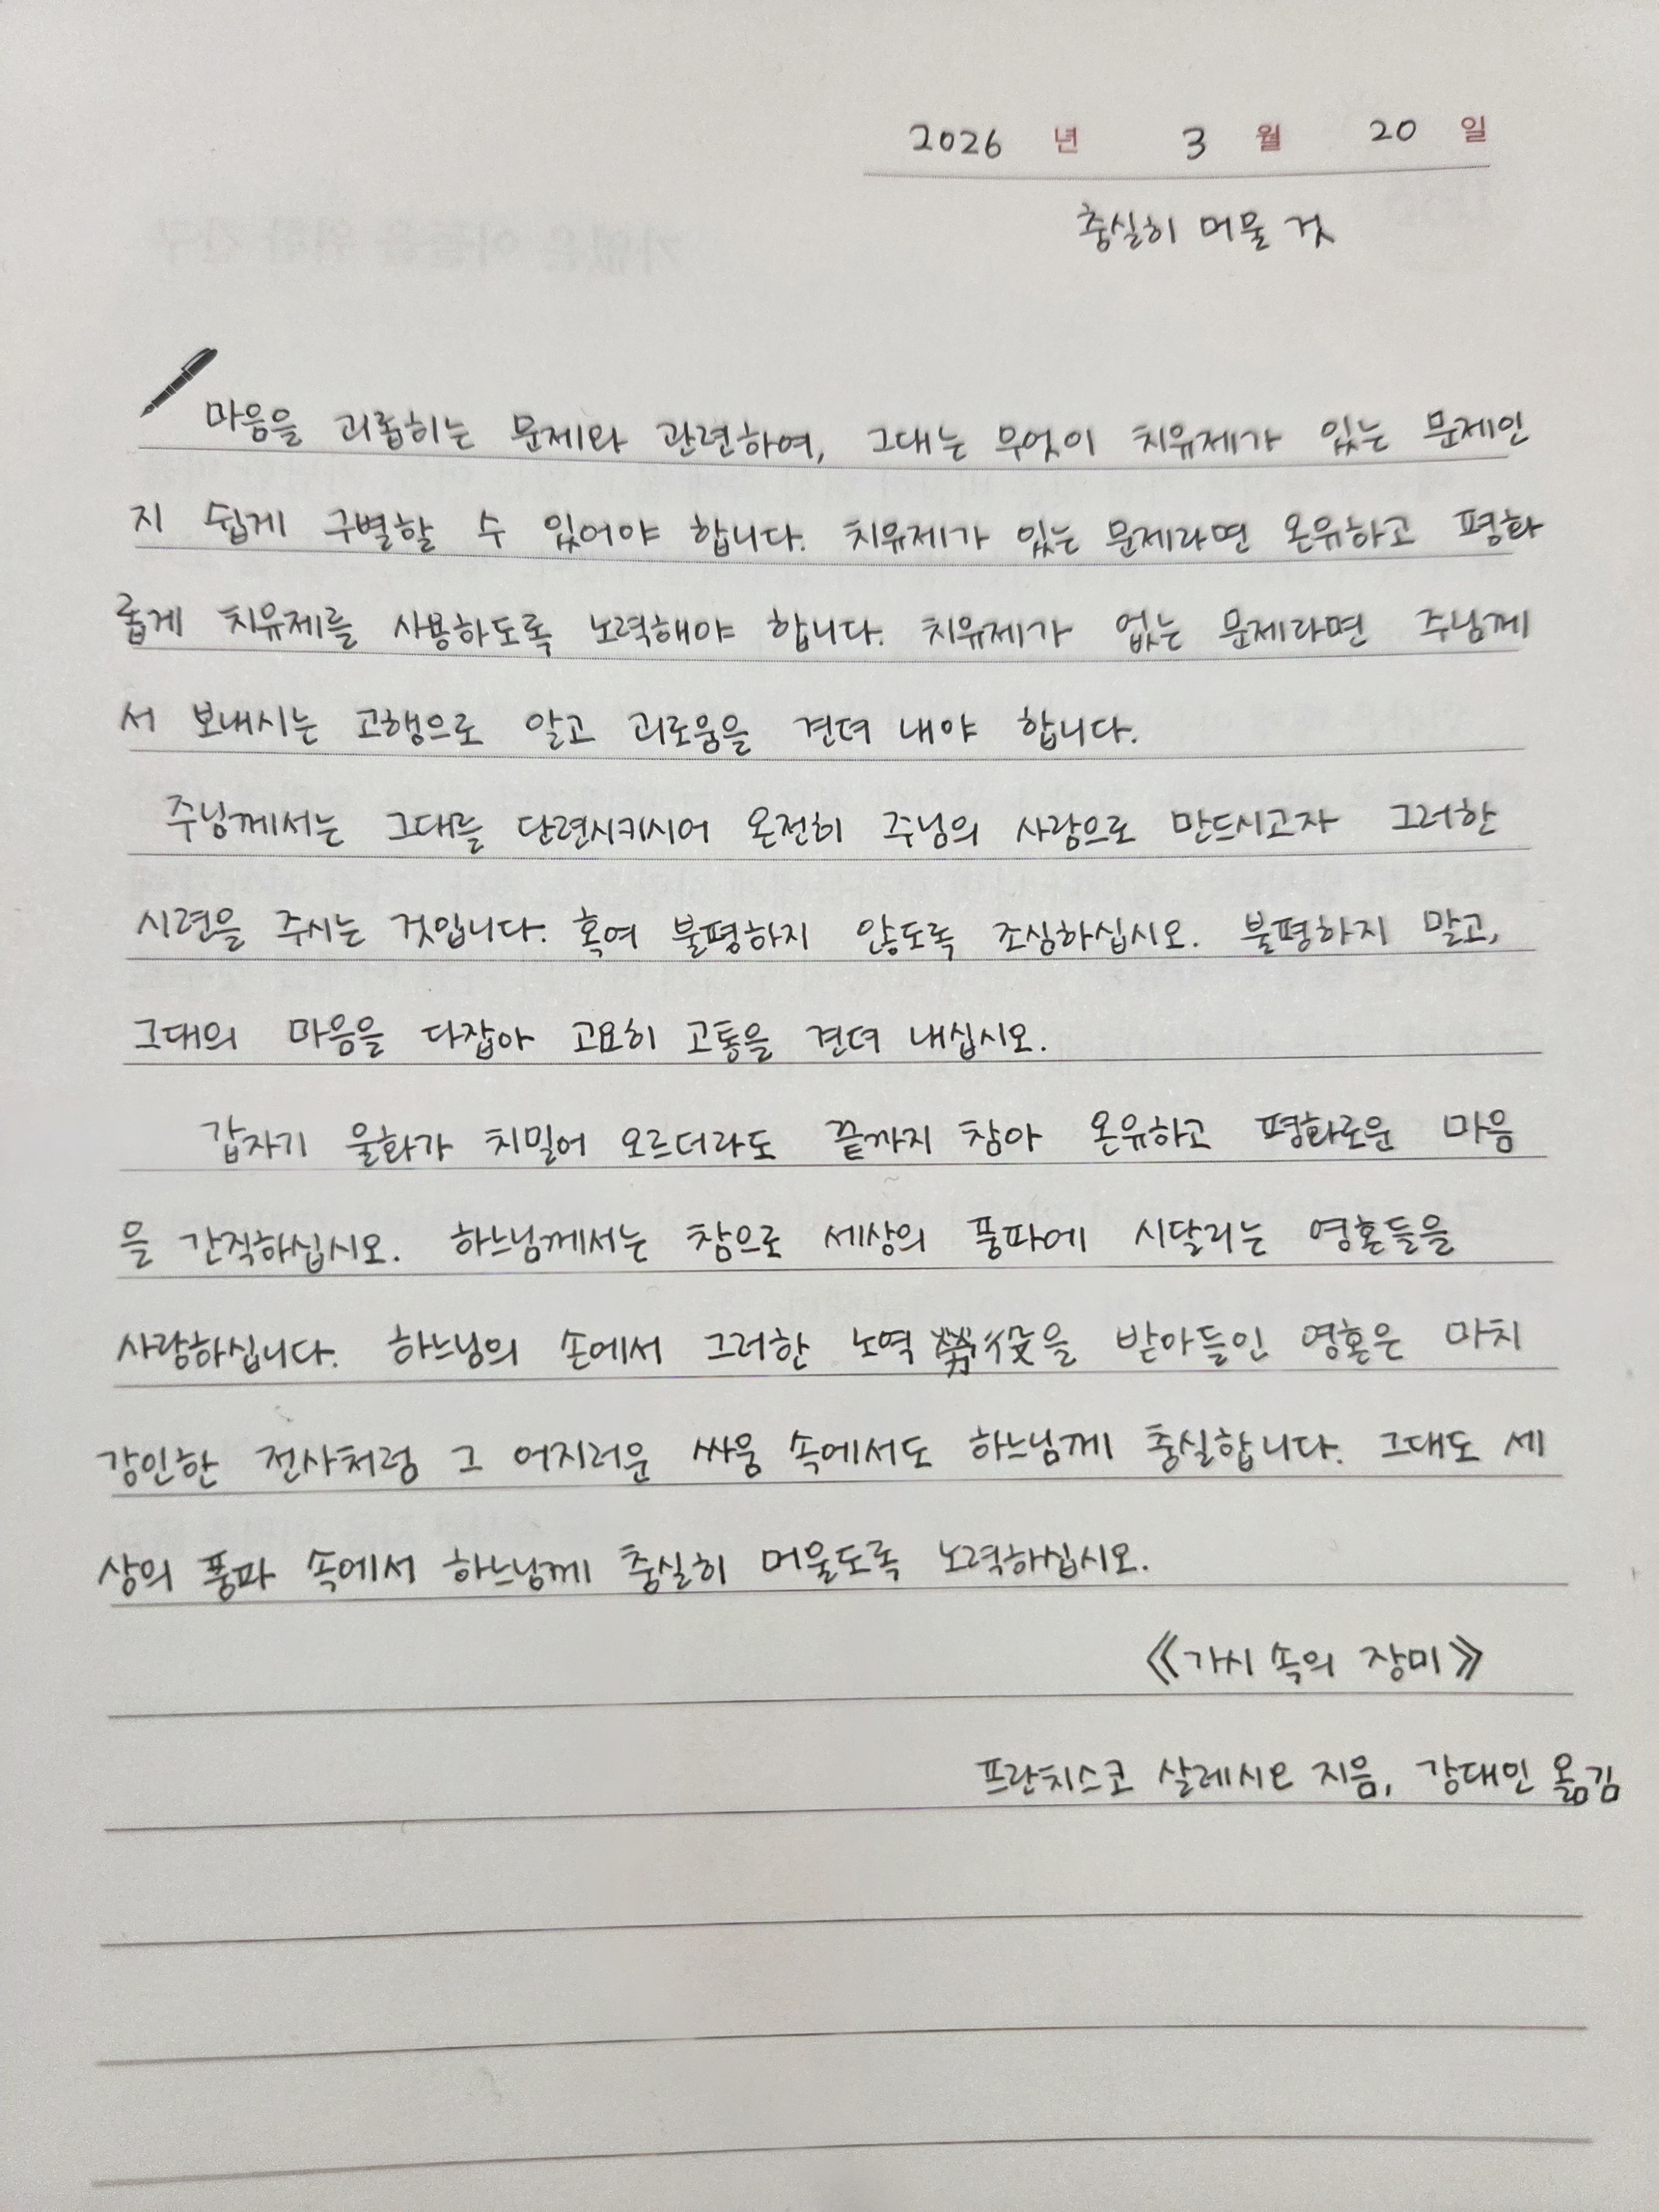 2026 년 3 월 20 일
충실히 머물 것
마음을 괴롭히는 문제와 관련하여, 그대는 무엇이 치유제가 있는 문제인
지 쉽게 구별할 수 있어야 합니다. 치유제가 있는 문제라면 온유하고 평화
롭게 치유제를 사용하도록 노력해야 합니다. 치유제가 없는 문제라면 주님께
서 보내시는 고행으로 알고 괴로움을 견뎌 내야 합니다.
주님께서는 그대를 단련시키시어 온전히 주님의 사람으로 만드시고자 그러한
시련을 주시는 것입니다. 혹여 불평하지 않도록 조심하십시오. 불평하지 말고,
그대의 마음을 다잡아 고요히 고통을 견뎌 내십시오.
갑자기 울화가 치밀어 오르더라도 끝까지 참아 온유하고 평화로운 마음
을 간직하십시오. 하느님께서는 참으로 세상의 풍파에 시달리는 영혼들을
사랑하십니다. 하느님의 손에서 그러한 노역 勞役을 받아들인 영혼은 마치
강인한 전사처럼 그 어지러운 싸움 속에서도 하느님께 충실합니다. 그대도 세
상의 풍파 속에서 하느님께 충실히 머물도록 노력하십시오.
《가시 속의 장미》
프란치스코 살레시오 지음, 강대인 옮김